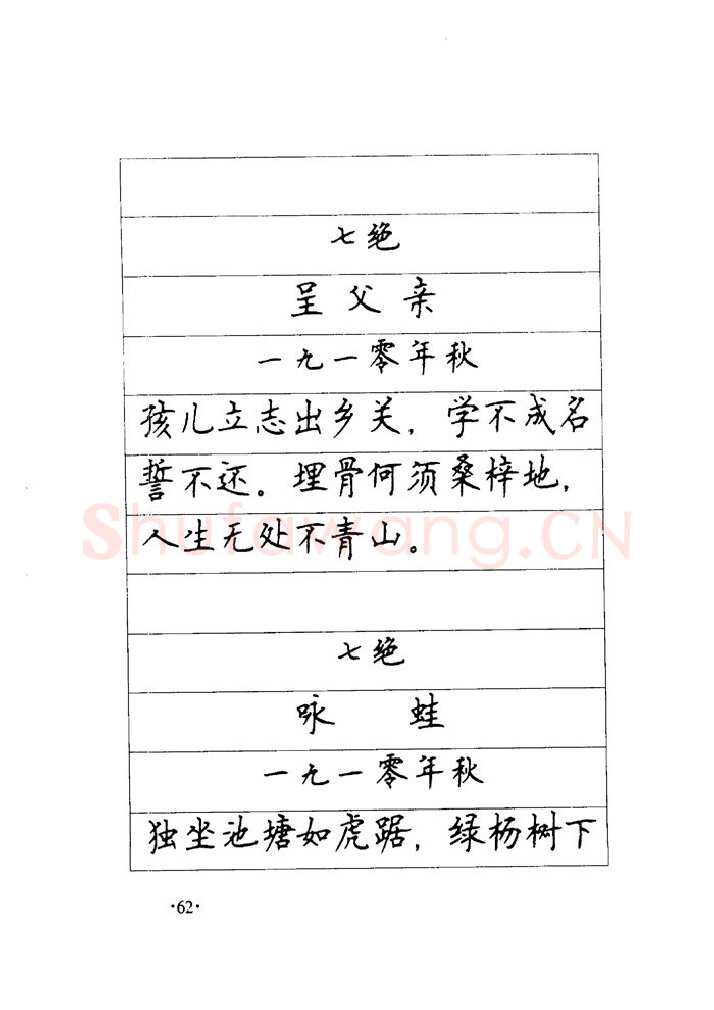 七绝
呈父亲
一九一零年秋
孩儿立志出乡关，学不成名
誓不还。埋骨何须桑梓地，
人生无处不青山。
Shufawang.CN
七绝
咏 蛙
一九一零年秋
独坐池塘如虎踞，绿杨树下
·62·